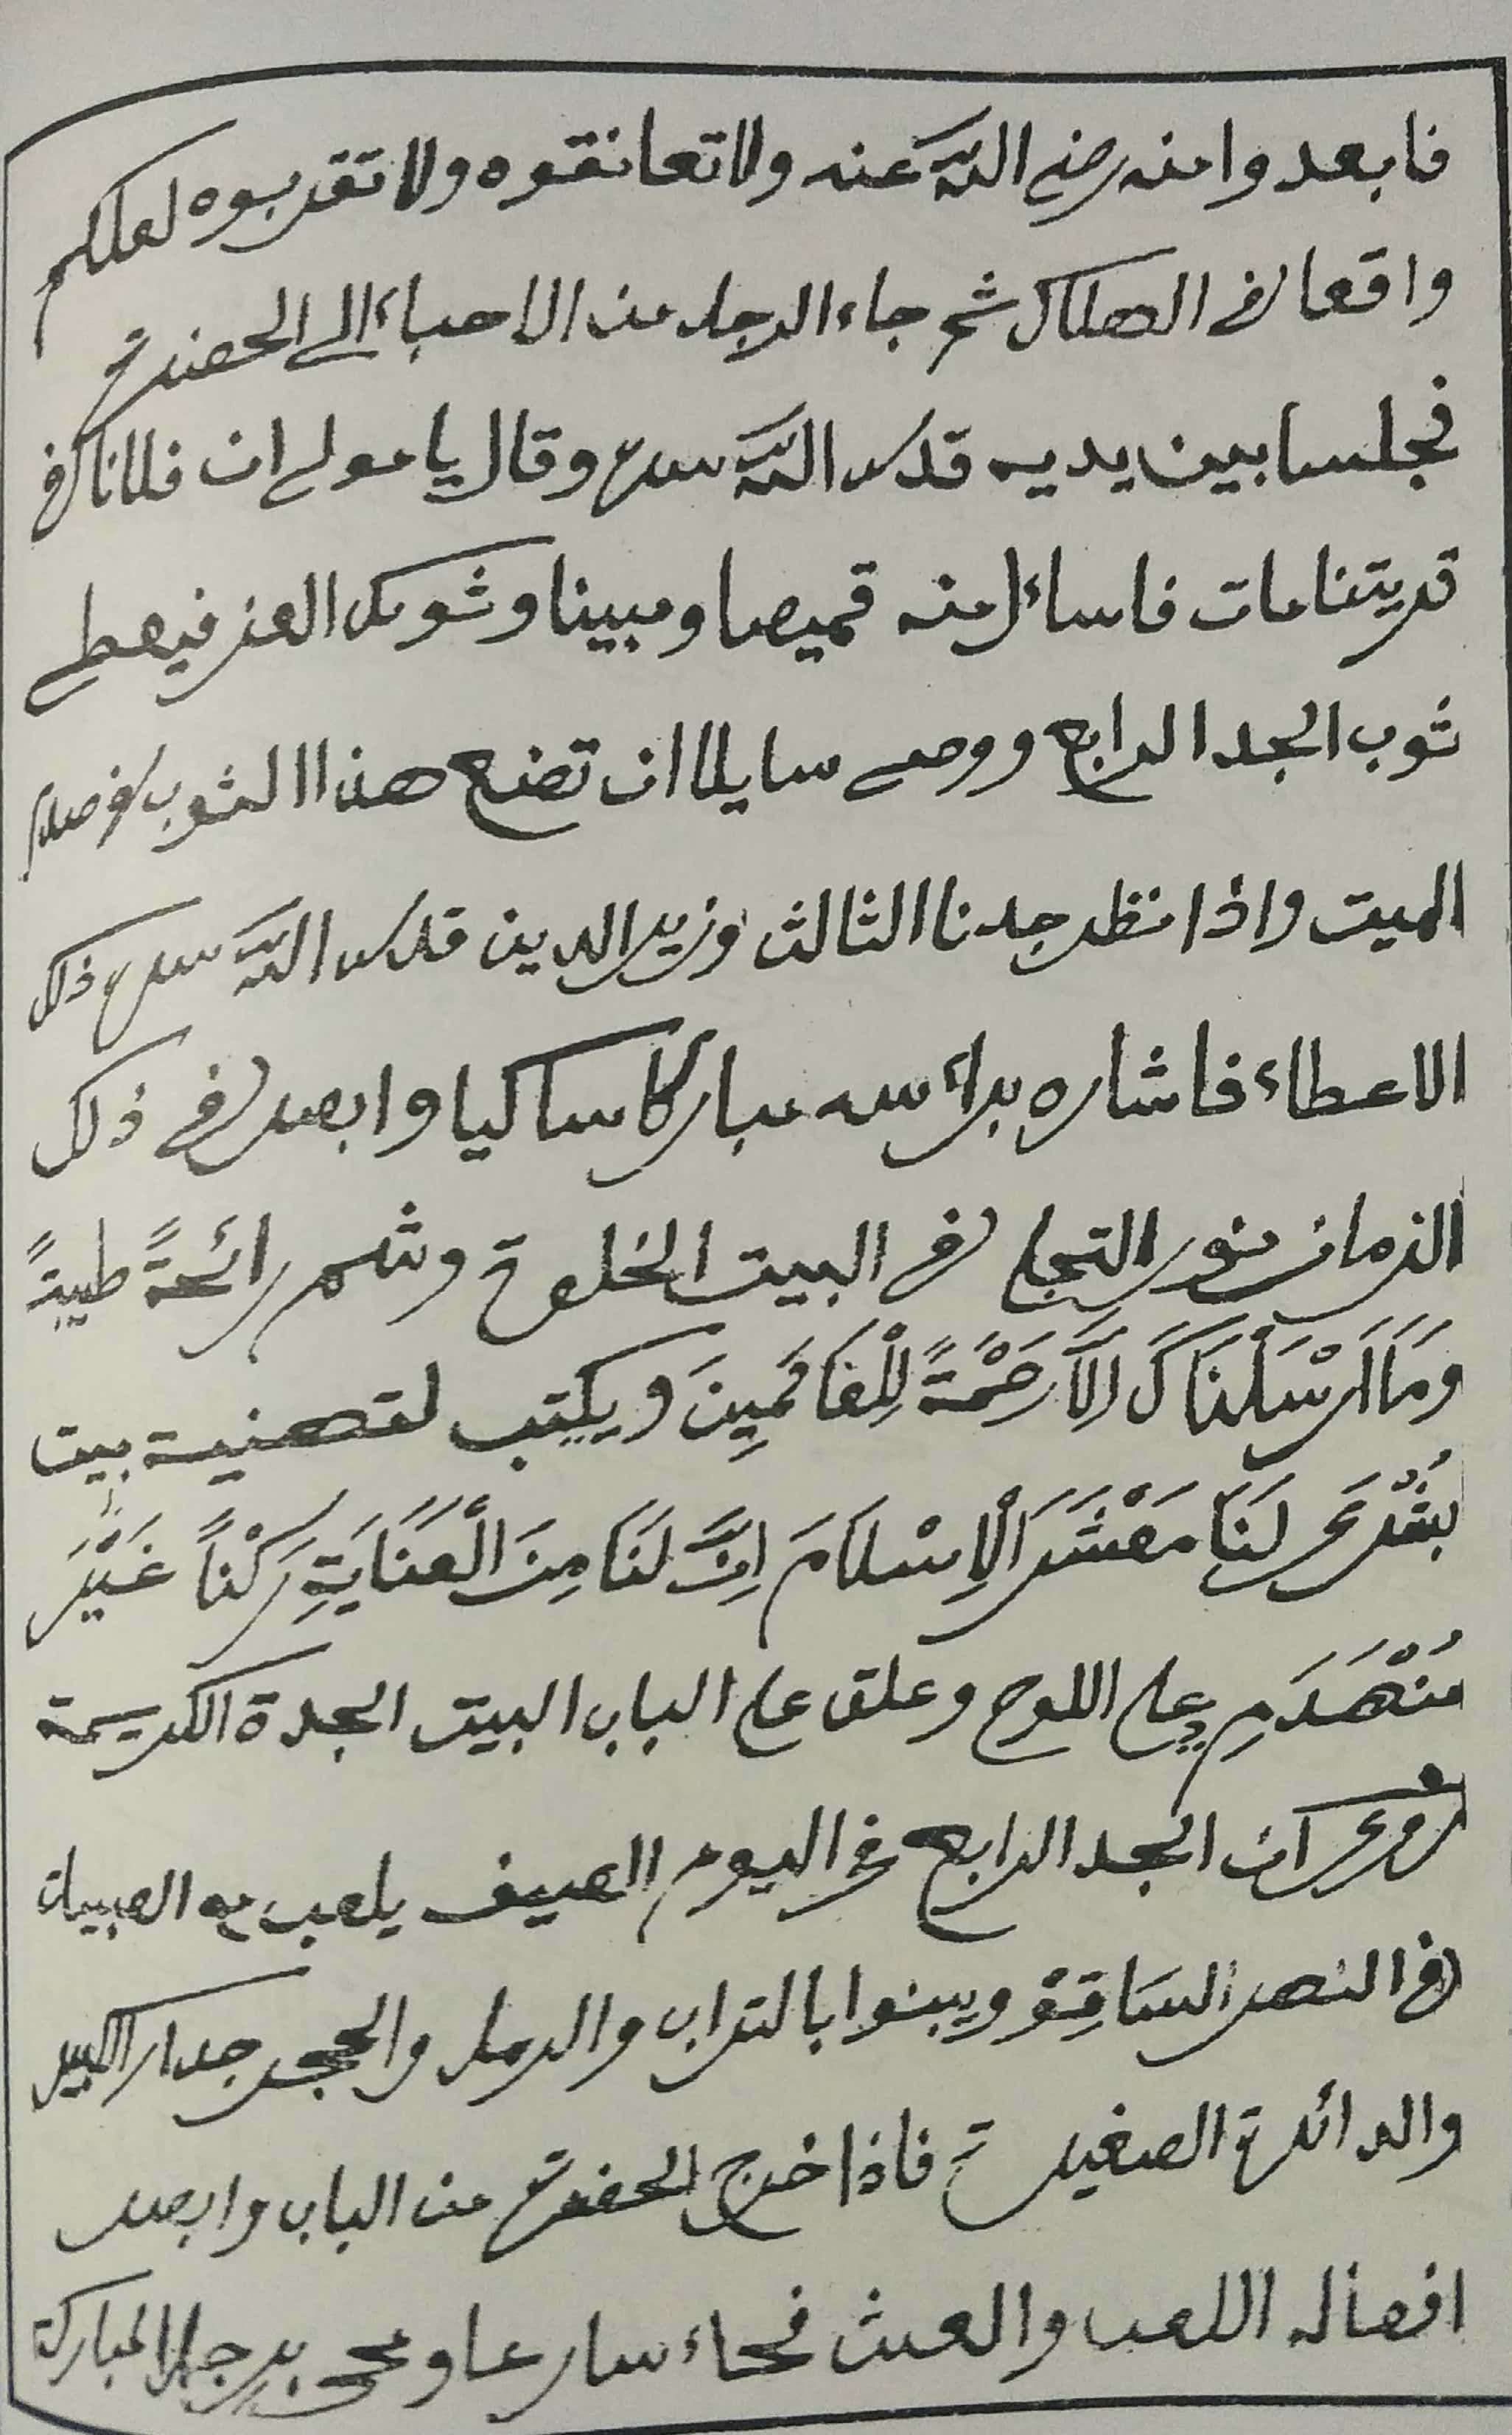 فابعدوا منه رضي اللّه عنه ولا تعانقوه ولا تقربوه لعلكم
واقعا في الهلاك ثم جاء الرجل من الاحباء الى الحضرة
فجلسا بين يديه قدس اللّه سره وقال يا مولى ان فلانا في
قريتنا مات فاسأل منه قميصا ومبينا وثوبك العز فيعطى
ثوب الجد الرابع ووصى سايلا ان تضع هذا الثوب في صدر
الميت واذا نظر جدنا الثالث وزير الدين قدس اللّه سره ذلك
الاعطاء فاشاره برأسه مباركا ساكيا وابصر في ذلك
الزمان بنور التجلى في البيت الخلوة وشم رائحةً طيبةً
وَمَا اَرْسَلْنَاكَ اِلَّا رَحْمَةً لِلْعَالَمِينَ ويكتب لتهنية بيت
بُشْرَى لَنَا مَعْشَرَ الْاِسْلَامَ اِنَّ لَنَا مِنَ الْعِنَايَةِ رَكْناً غَيْرَ
مُنْهَدَمِ على اللوح وعلق على الباب البيت الجدة الكريمة
روى ان الجد الرابع في اليوم الصيف يلعب مع الصبيان
في النهر الساقِة ويبنوا بالتراب والرمل والحجر جدار الكبير
والدائرة الصغيرة فاذا خرج الحضرة من الباب وابصر
افعاله اللعب والعبث فجاء سارعا ومحى برجل المباركة